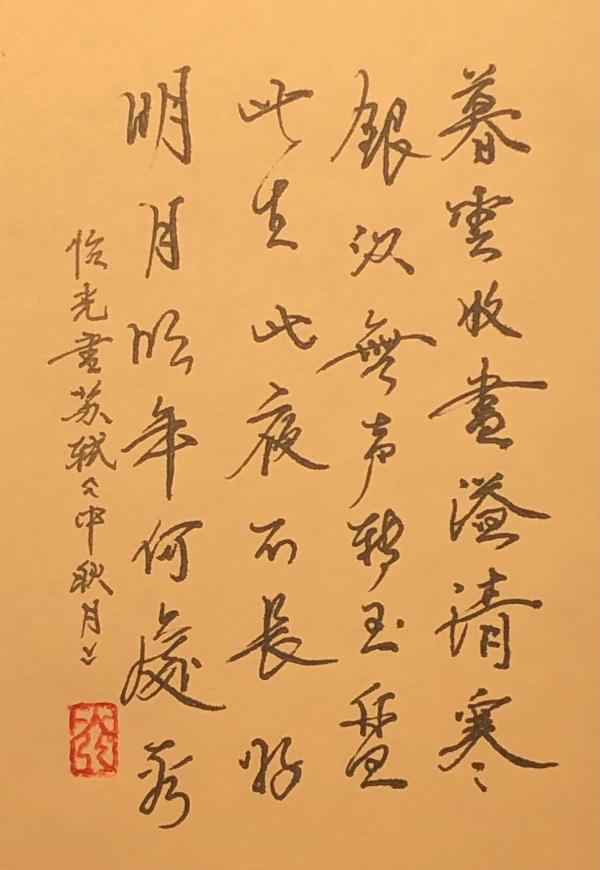 暮雲收盡溢清寒
銀汉無声轉玉盤
此生此夜不長好
明月明年何處看
怡光書苏轼《中秋月》